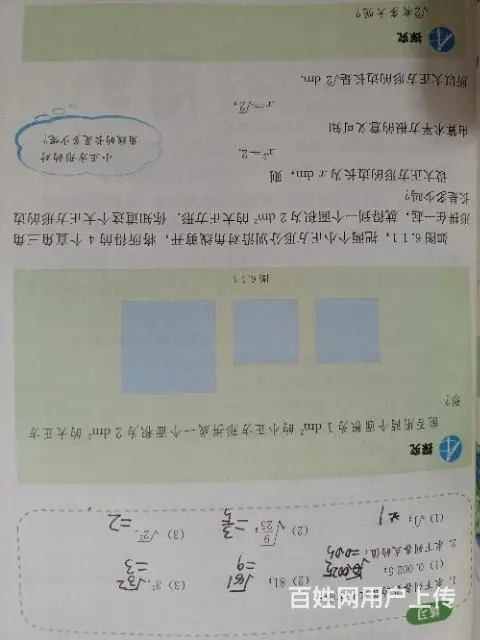 练习
1. 求下列各数的算术平方根:
(1) 0.0025; (2) 81; (3) 3².
√0.0025 =0.05 √81 =9 √3² =3
2. 求下列各式的值:
(1) √1; (2) √9/25; (3) √2².
±1 =3/5 =2
探究
能否用两个面积为 1 dm² 的小正方形拼成一个面积为 2 dm² 的大正方
形?
图 6.1-1
如图 6.1-1,把两个小正方形分别沿对角线剪开,将所得的 4 个直角三角
形拼在一起,就得到一个面积为 2 dm² 的大正方形.你知道这个大正方形的边
长是多少吗?
设大正方形的边长为 x dm,则
x²=2.
由算术平方根的意义可知
x=√2,
所以大正方形的边长是√2 dm.
小正方形的对
角线的长是多少呢?
探究
√2有多大呢?
百姓网用户上传